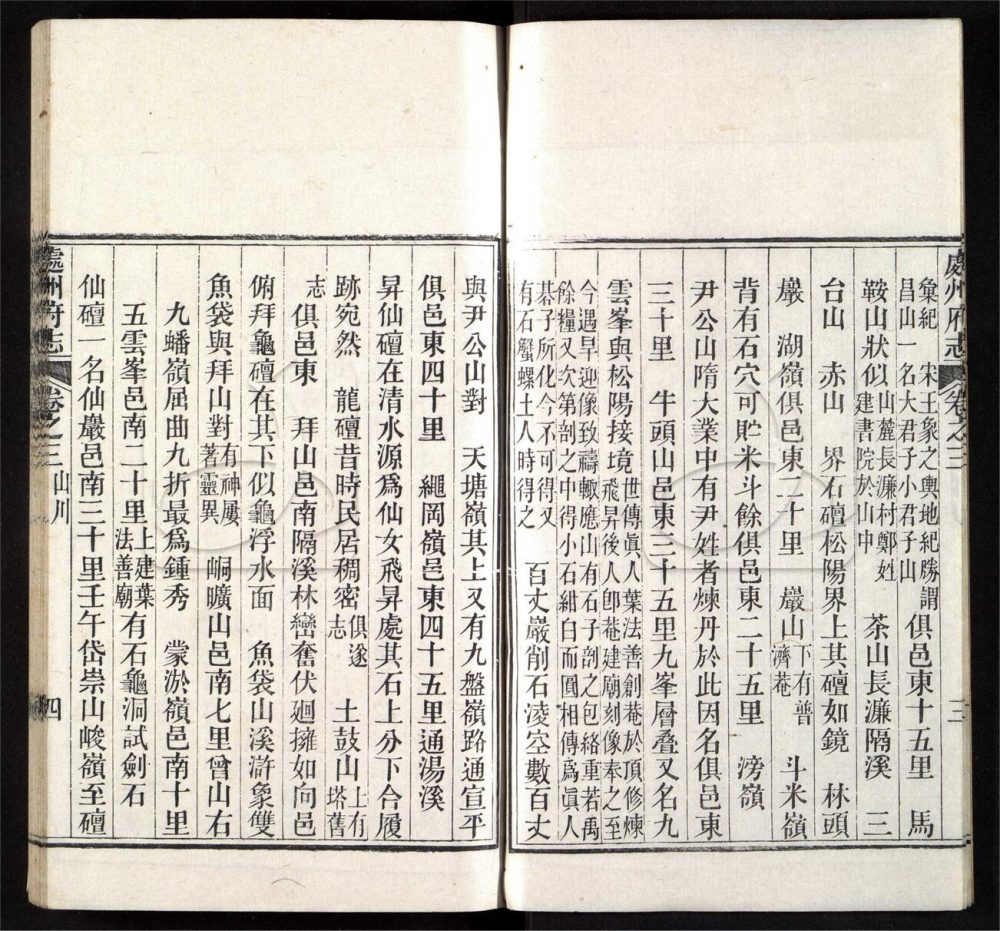 處州府志 卷之三 三
彙紀 宋王象之輿地紀勝謂
昌山一名大君子小君子山
俱邑東十五里 馬
鞍山狀似山麓長濂村鄭姓
建書院於山中
茶山長濂隔溪 三
台山 赤山 界石壇松陽界上其壇如鏡 林頭
巖 湖嶺俱邑東二十里 巖山下有普
濟菴
斗米嶺
背有石穴可貯米斗餘俱邑東二十五里 滂嶺
尹公山隋大業中有尹姓者煉丹於此因名俱邑東
三十里 牛頭山邑東三十五里九峯層叠又名九
雲峯與松陽接境世傳眞人葉法善創菴於頂修煉
飛昇後人卽菴建廟刻像奉之至
今遇旱迎像致禱輙應山有石子剖之包絡重若禹
餘糧又次第剖之中得小石紺白而圓相傳爲眞人
棊子所化今不可得又
有石蟹螺土人時得之
百丈巖削石淩空數百丈
與尹公山對 天塘嶺其上又有九盤嶺路通宣平
俱邑東四十里 繩岡嶺邑東四十五里通湯溪
昇仙壇在清水源爲仙女飛昇處其石上分下合履
跡宛然 龍壇昔時民居稠密俱遂
志
土鼓山上有
塔舊
志 俱邑東 拜山邑南隔溪林巒奮伏廻擁如向邑
俯拜龜壇在其下似龜浮水面 魚袋山溪滸象雙
魚袋與拜山對有神屢
著靈異
峒曠山邑南七里曾山右
九蟠嶺屈曲九折最爲鍾秀 蒙淤嶺邑南十里
五雲峯邑南二十里上建葉
法善廟
有石龜洞試劍石
仙壇一名仙巖邑南三十里壬午岱崇山峻嶺至壇
處州府志 卷之三 山川 四